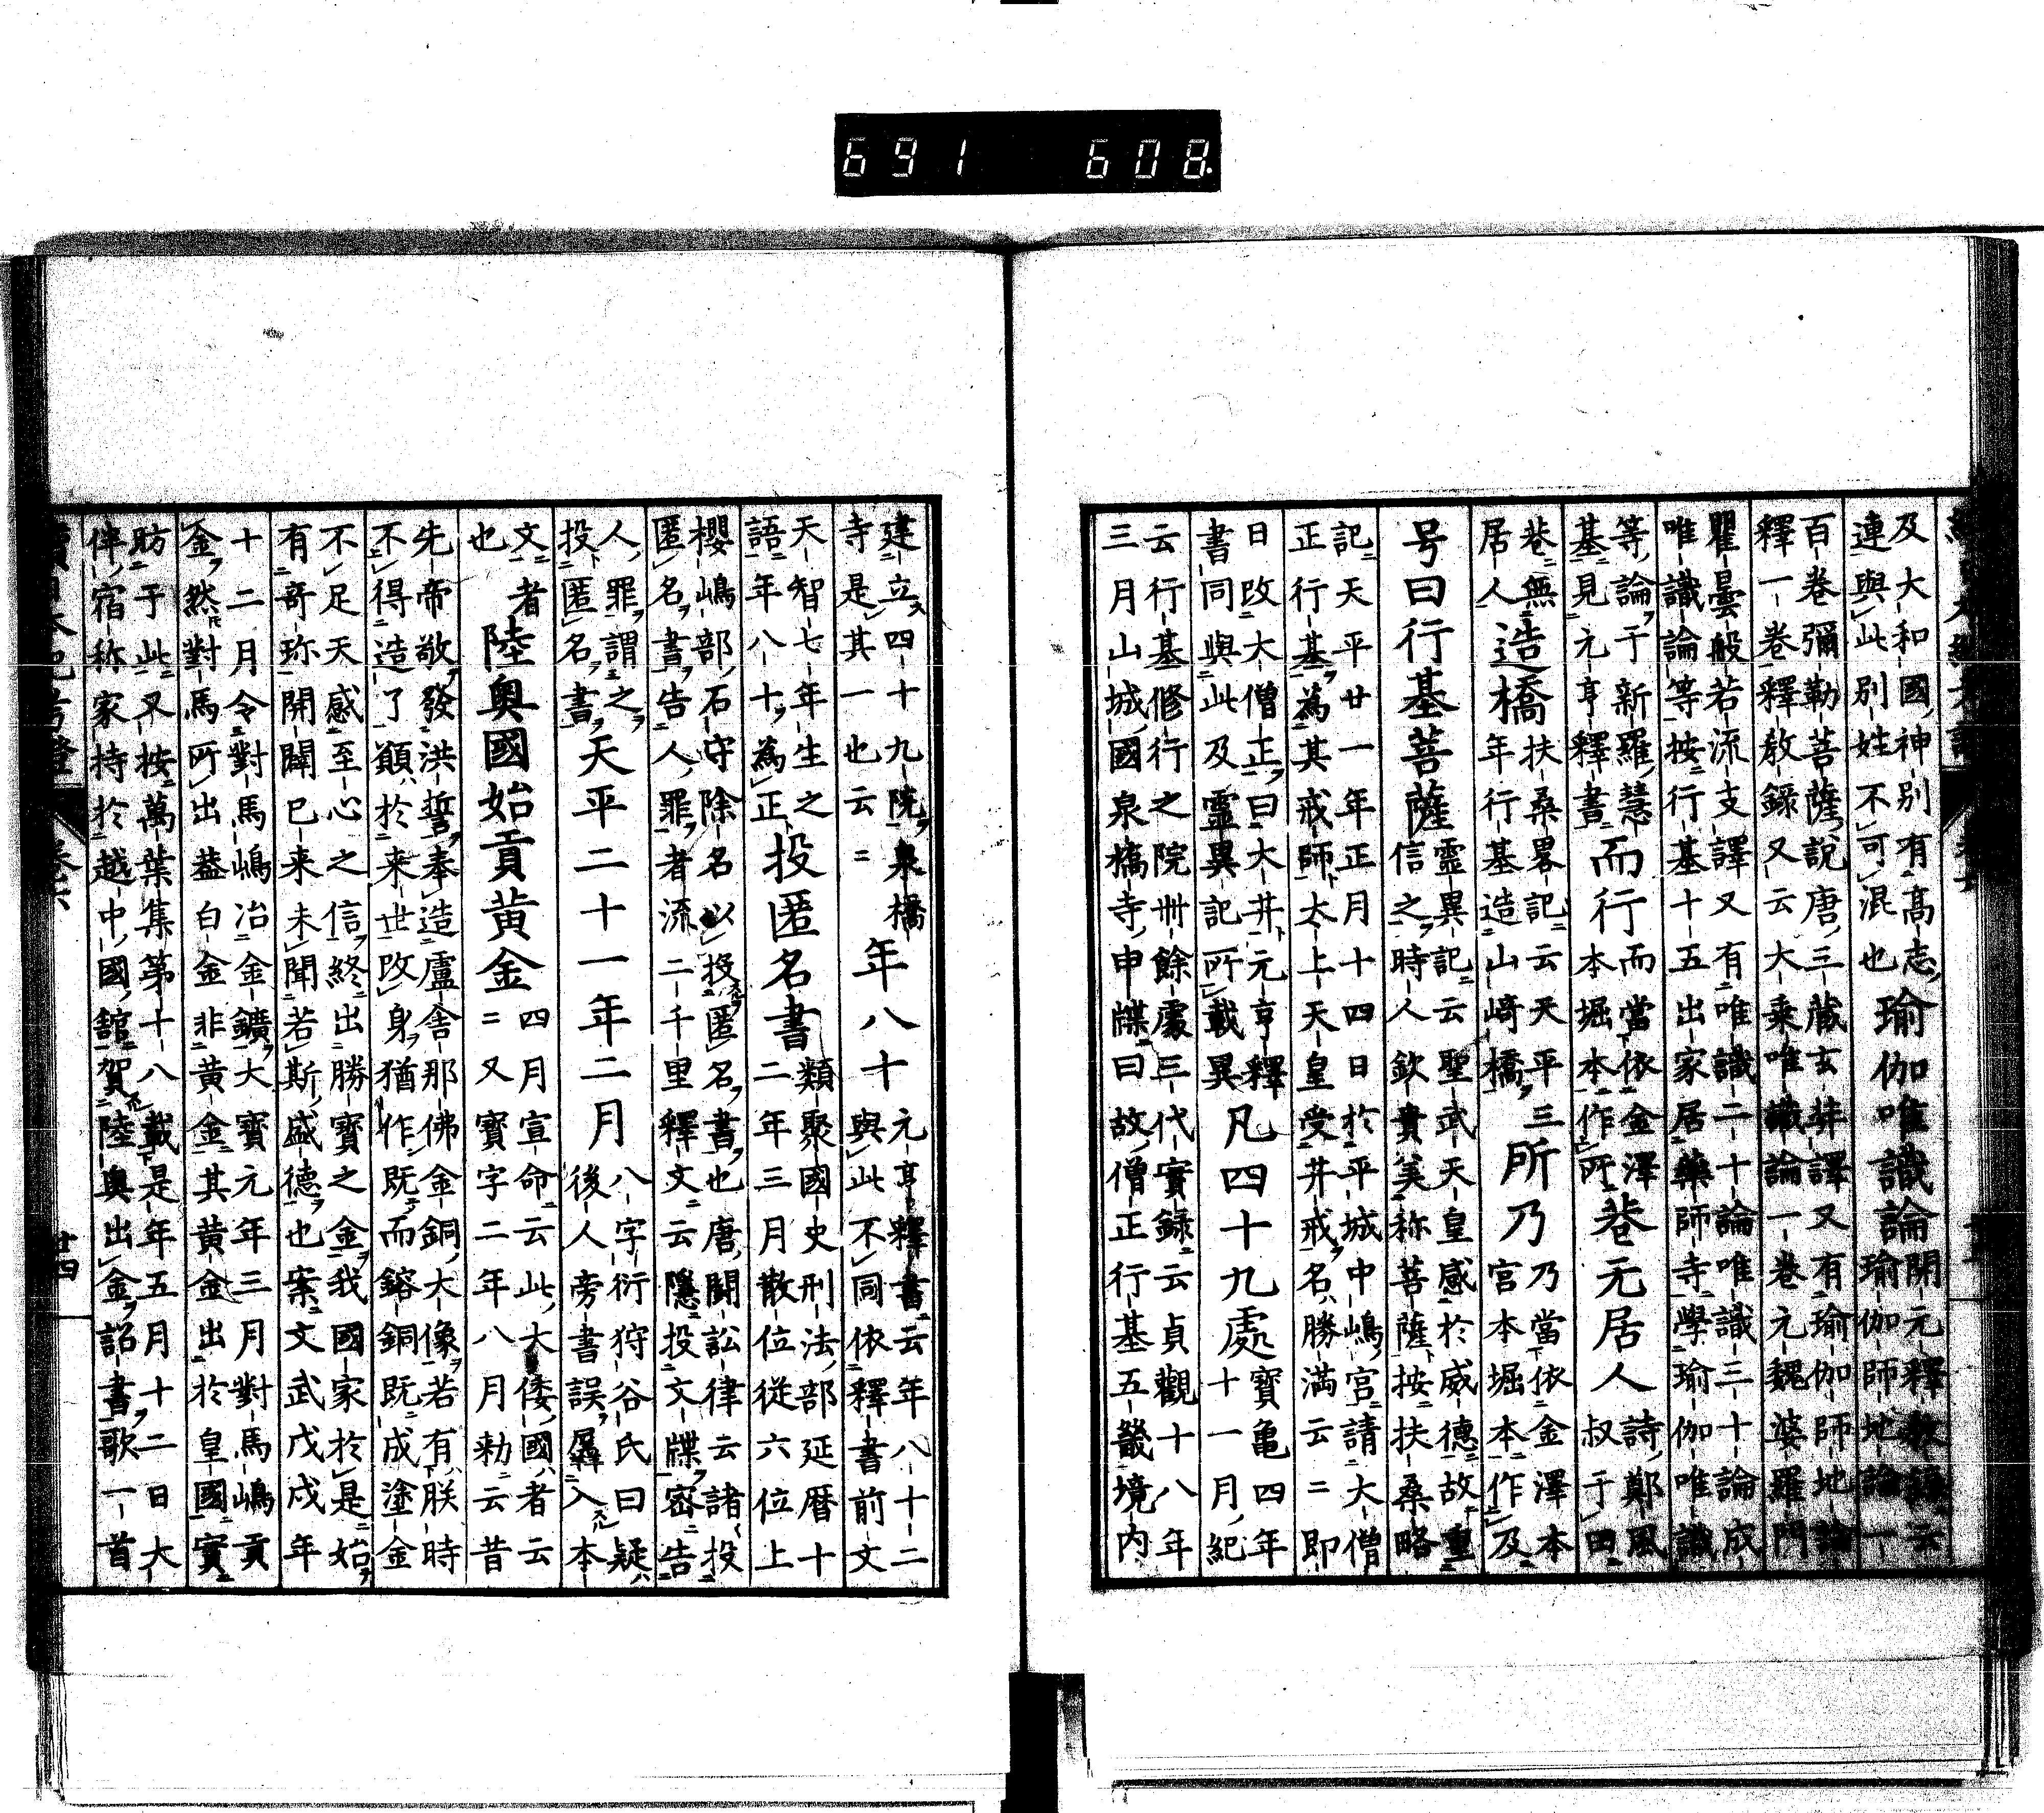 及大和國神別有高志
連與此別姓不可混也
瑜伽唯識論
開元釋教錄云
瑜伽師地論一
百卷彌勒菩薩說唐三藏玄奘譯又有瑜伽師地論
釋一卷釋教錄又云大乗唯識論一卷元魏婆羅門
瞿曇般若流支譯又有唯識二十論唯識三十論成
唯識論等按行基十五出家居藥師寺學瑜伽唯識
等論于新羅慧
基見元亨釋書
而行
而當依金澤
本堀本作所
巷元居人
詩鄭風
叔于田
巷無
居人
造橋
扶桑畧記云天平三
年行基造山﨑橋
所乃
乃當依金澤本
宮本堀本作及
号曰行基菩薩
靈異記云聖武天皇感於威德故重
信之時人欽貴美称菩薩按扶桑略
記天平廿一年正月十四日於平城中嶋宮請大僧
正行基為其戒師太上天皇受井戒名勝満云二即
日改大僧正曰大井元亨釋
書同與此及靈異記所載異
凡四十九處
寶亀四年
十一月紀
云行基修行之院卌餘處三代實録云貞觀十八年
三月山城國泉橋寺申牒曰故僧正行基五畿境内
建立四十九院泉橋
寺是其一也云二
年八十
元亨釋書云年八十二
與此不同依釋書前文
天智七年生之
語年八十為正
投匿名書
類聚國史刑法部延暦十
二年三月散位従六位上
櫻嶋部石守除名以投匿名書也唐闘訟律云諸投
匿名書告人罪者流二千里釋文云隱投文牒密告
人罪謂之
投匿名書
天平二十一年二月
八字衍狩谷氏曰疑
後人旁書誤羼入本
文者
也
陸奥國始貢黄金
四月宣命云此大倭國者云
二又寳字二年八月勅云昔
先帝敬發洪誓奉造盧舎那佛金銅大像若有朕時
不得造了顛於来世改身猶作既而鎔銅既成塗金
不足天感至心之信終出勝寳之金我國家於是始
有奇珎開闢已来未聞若斯盛德也案文武戊戌年
十二月令對馬嶋冶金鑛大寳元年三月對馬嶋貢
金然對馬所出蓋白金非黄金其黄金出於皇國實
昉于此又按萬葉集第十八載是年五月十二日大
伴宿祢家持於越中國舘賀陸奥出金詔書歌一首
卷六
廿四
691 608.